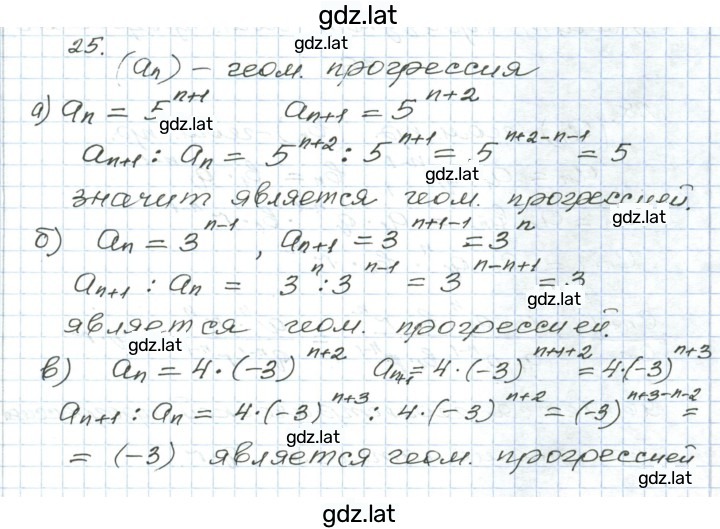 gdz.lat
25.
gdz.lat
(aₙ) – геом. прогрессия
а) aₙ = 5ⁿ⁺¹   aₙ₊₁ = 5ⁿ⁺²
gdz.lat
aₙ₊₁ : aₙ = 5ⁿ⁺² : 5ⁿ⁺¹ = 5ⁿ⁺²⁻ⁿ⁻¹ = 5
gdz.lat
значит является геом. прогрессией.
gdz.lat
б) aₙ = 3ⁿ⁻¹, aₙ₊₁ = 3ⁿ⁺¹⁻¹ = 3ⁿ
aₙ₊₁ : aₙ = 3ⁿ : 3ⁿ⁻¹ = 3ⁿ⁻ⁿ⁺¹ = 3
gdz.lat
является геом. прогрессией.
gdz.lat
в) aₙ = 4·(-3)ⁿ⁺²   aₙ₊₁ = 4·(-3)ⁿ⁺¹⁺² = 4·(-3)ⁿ⁺³
aₙ₊₁ : aₙ = 4·(-3)ⁿ⁺³ : 4·(-3)ⁿ⁺² = (-3)ⁿ⁺³⁻ⁿ⁻² =
gdz.lat
= (-3) является геом. прогрессией
gdz.lat
gdz.lat